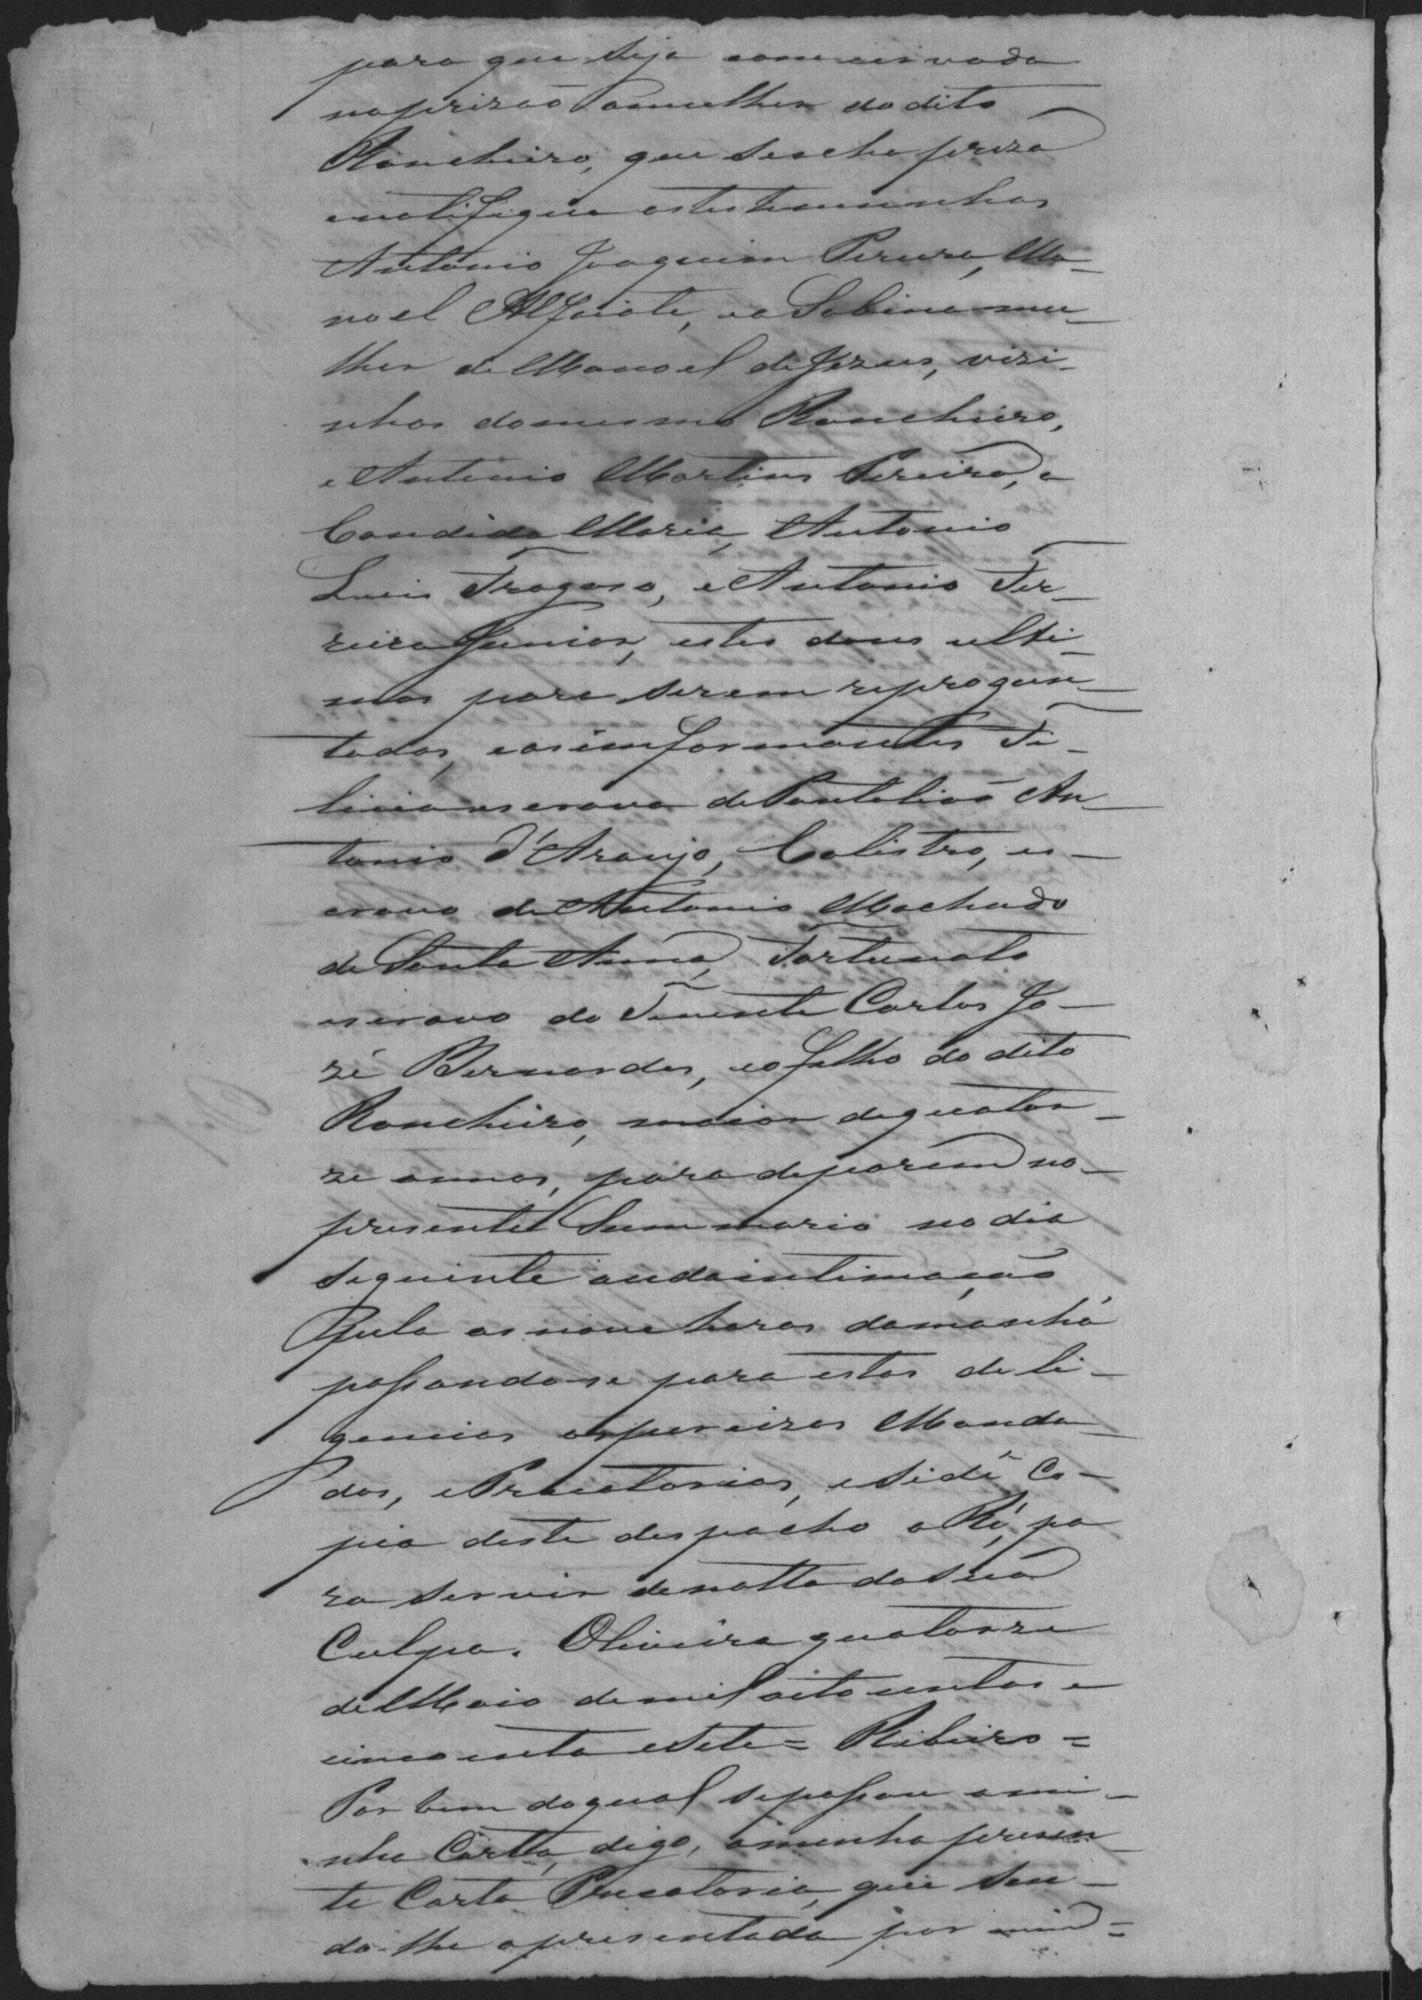 para que seja conservada
na prizaõ a mulher do dito
Rancheiro, que se acha preza
e notifique as testemunhas
Antonio Joaquim Pereira, Ma-
noel Alfaiate, e a Sabina mu-
lher de Manoel de Jezus, vizi-
nhos do mesmo Rancheiro,
e Antonio Martins Pereira, e
Candida Maria, Antonio
Luis Fragoso, e Antonio Fer-
reira Junior, estes dous ulti-
mos para serem repregun-
tados, e as imformantes Fe-
licia escrava de Pantaliaõ An-
tonio d'Araujo, Calistro, es-
cravo de Antonio Machado
de Santa Anna, Fortunato
escravo do Tenente Carlos Jo-
zé Bernardes, e o filho do dito
Rancheiro, maior de quator-
ze annos, para deporem no
presente Summario no dia
seguinte ao da intimaçaõ
pela as nove horas da manhã
passando-se para estas deli-
gencias os percizos Manda-
dos, e Precatorias, e se dê Co-
pia deste despacho a Ré, pa
ra servir de notta da sua
Culpa. Oliveira quatorze
de Maio de mil oito centos e
cincoenta e sete = Ribeiro =
Por bem do qual se passou a mi-
nha Carta, digo, a minha presen-
te Carta Precatoria, que sen-
do-lhe apresentada por mim =